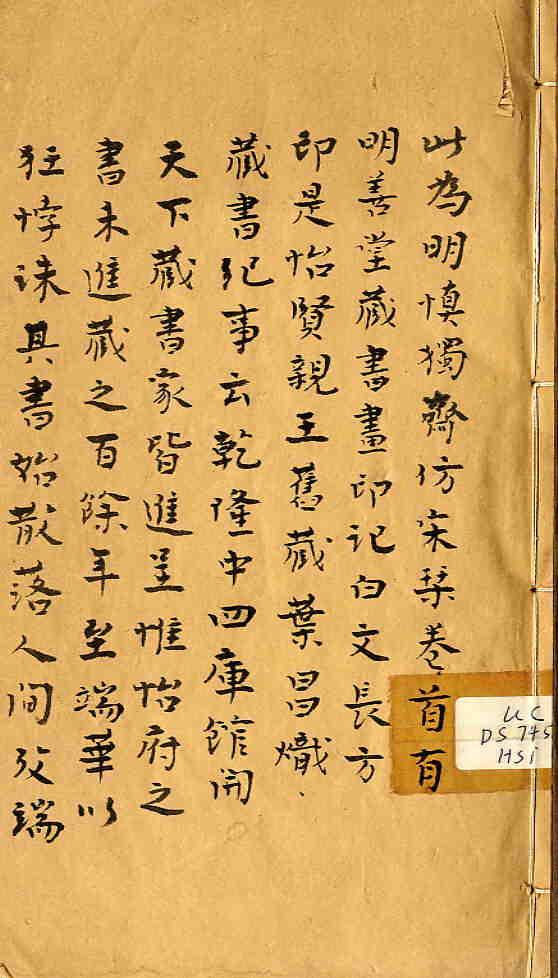 此為明慎獨齋仿宋槧卷首有
明善堂藏書畫印記白文長方
印是怡賢親王舊藏葉昌熾
藏書紀事云乾隆中四庫館開
天下藏書家皆進呈惟怡府之
書未進藏之百餘年至端華以
狂悖誅其書始散落人間攷端
UC
DS 745
HSi